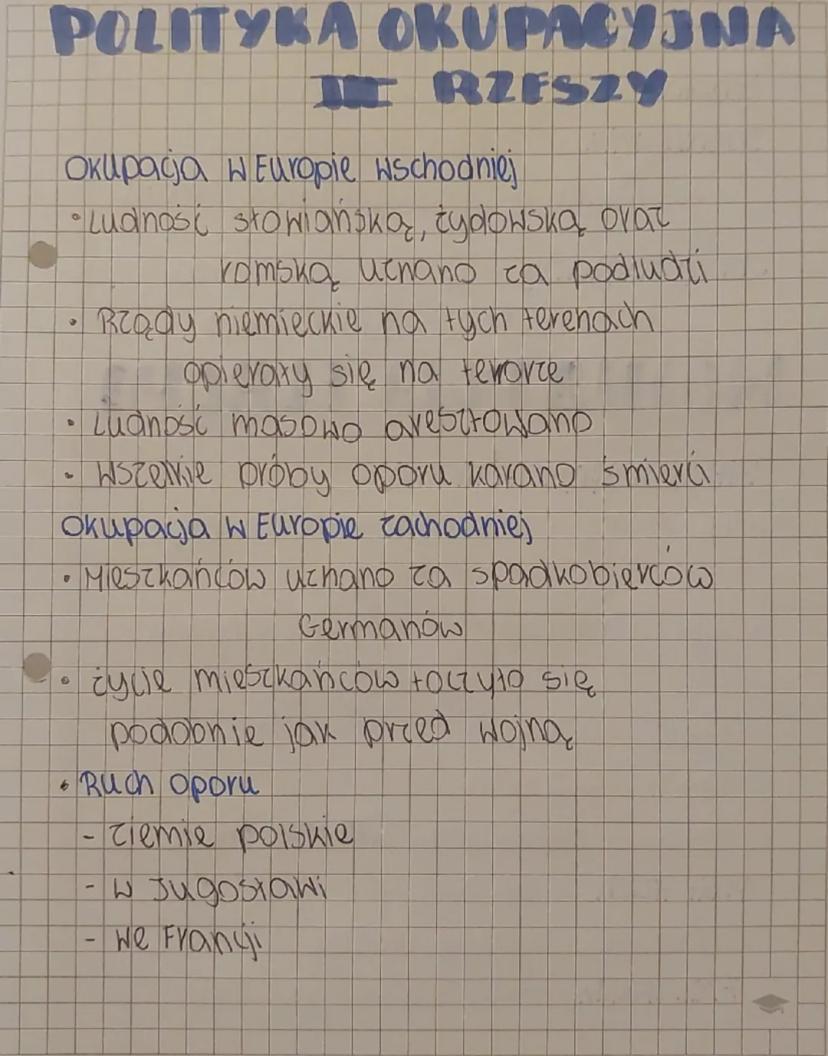 POLITYKA OKUPACYJNA
III RZESZY
Okupacja w Europie wschodniej
• Ludność słowiańską, żydowską oraz
romską uznano za podludzi
• Rządy niemieckie na tych terenach
opierały się na terrorze
• Ludność masowo aresztowano
• Wszelkie próby oporu karano śmierci
Okupacja w Europie zachodniej
• Mieszkańców uznano za spadkobierców
Germanów
• Życie mieszkańców toczyło się
podobnie jak przed wojną
• Ruch oporu
- ziemie polskie
- w Jugosławi
- we Francji